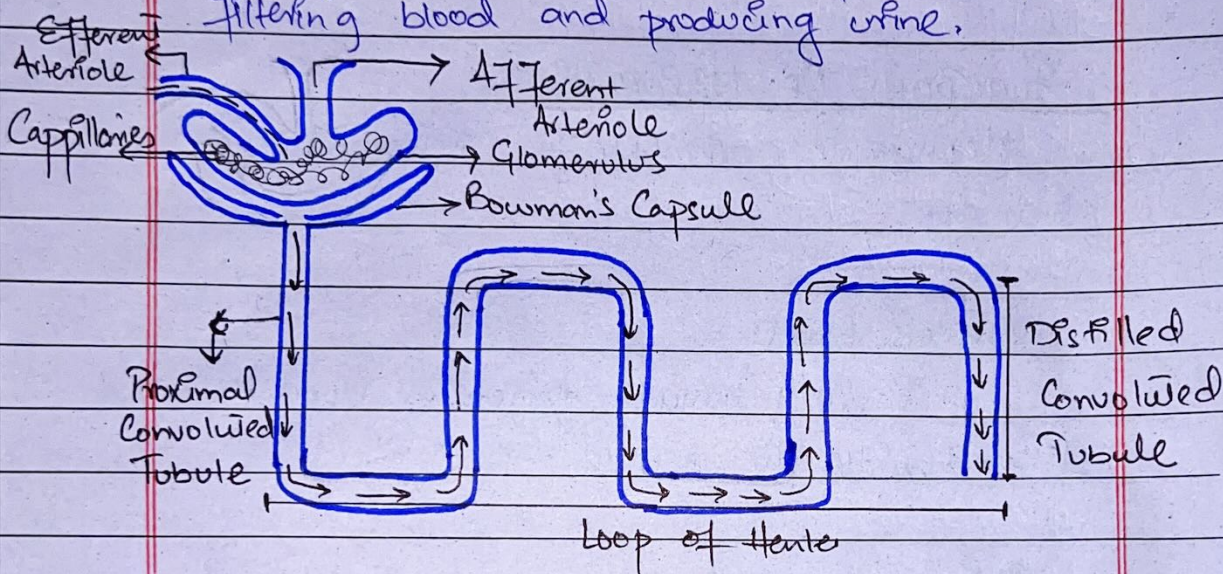 filtering blood and producing urine.
Efferent
Arteriole
Afferent
Arteriole
Cappillaries
Glomerulus
Bowman's Capsule
Proximal
Convoluted
Tubule
Distilled
Convoluted
Tubule
Loop of Henle